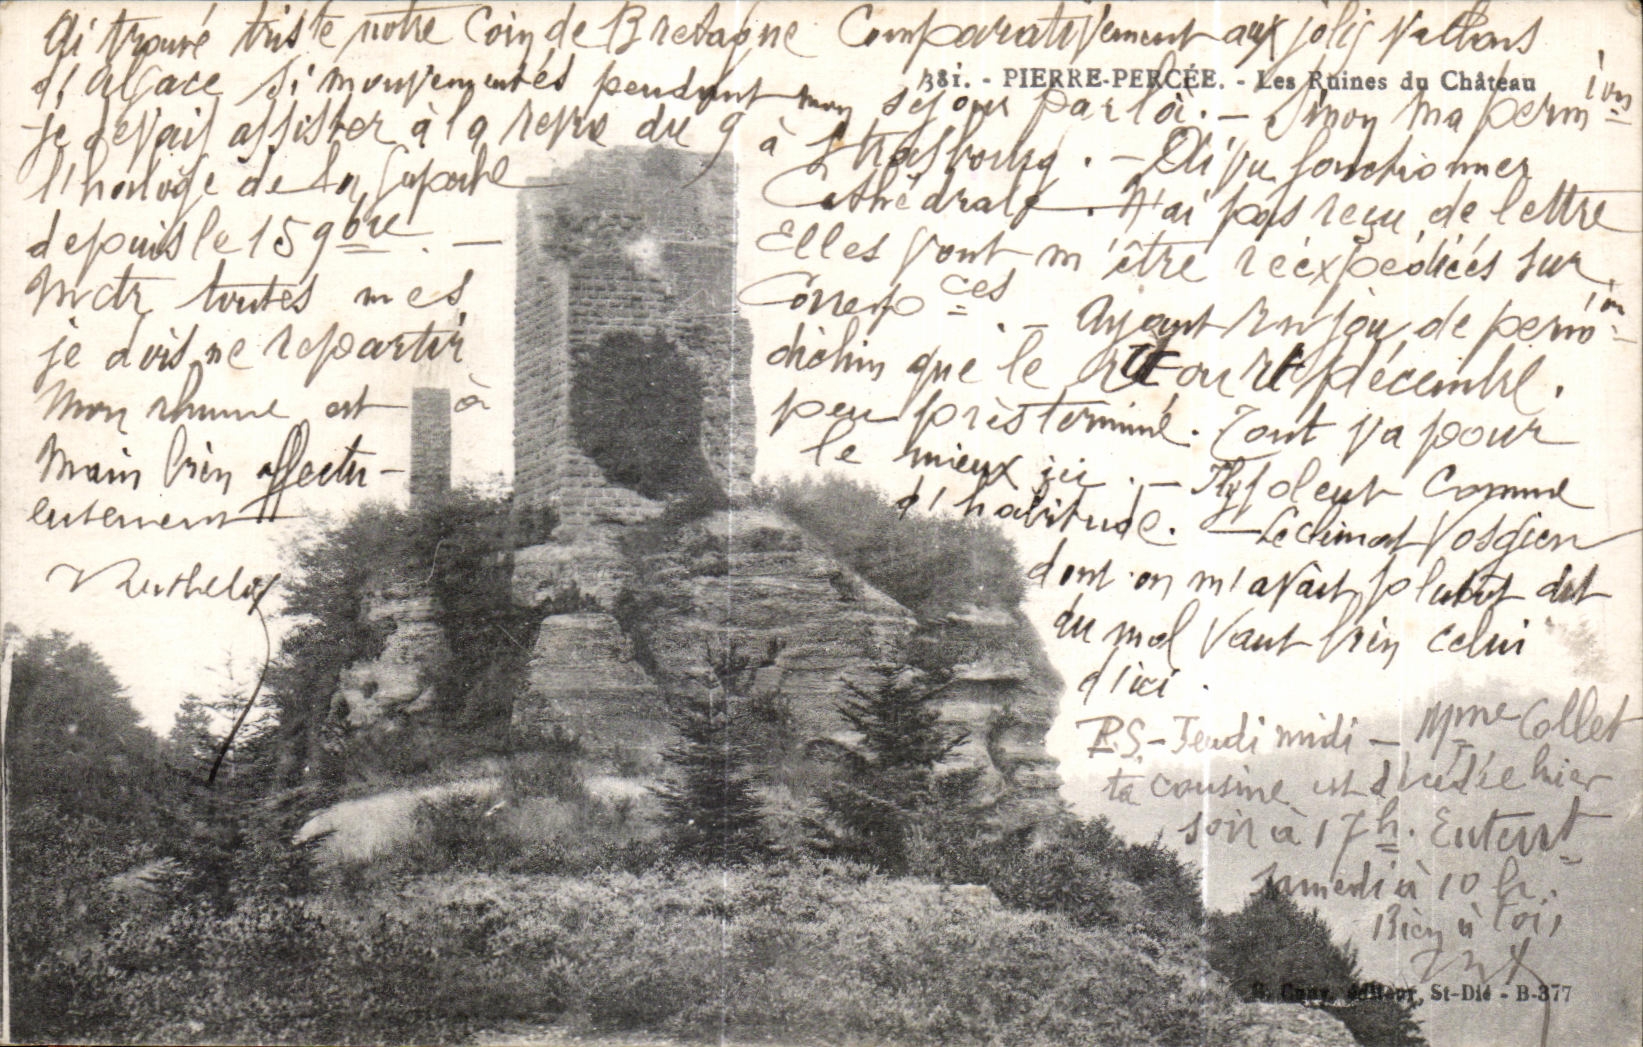 Ai trouvé triste notre Coin de Bretagne Comparativement aux jolis vallons
d'Alsace si mouvementés pendant mon séjour par là. - Sinon ma perm ion
381. - PIERRE-PERCÉE. - Les Ruines du Château
je devais assister à la revue du 9 à Strasbourg. - Ai vu fonctionner
l'horloge de la Cathédrale. N'ai pas reçu de lettre
depuis le 15 9bre. - Elles vont m'être réexpédiées sur
toutes mes Corresp ces. - Ayant jour de perm ion
je dois ne repartir que le décembre.
Mon rhume est à peu près terminé. Tout va pour
le mieux ici. - Il pleut comme
Main bien affectu-
d'habitude. - Le climat Vosgien
eusement
dont on m'avait plutôt dit
Berthelot
du mal vaut bien celui
d'ici.
P.S. - Jeudi midi - Mme Collet
ta cousine est décédée hier
soir à 17 h. Enterrt
samedi à 10 h.
Bien à toi,
éditeur, St-Dié - B-377